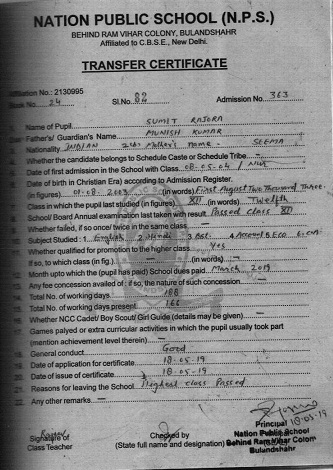 NATION PUBLIC SCHOOL (N.P.S.)
BEHIND RAM VIHAR COLONY, BULANDSHAHR
Affiliated to C.B.S.E., New Delhi.
TRANSFER CERTIFICATE
Affiliation No.: 2130995
Book No. 24 Sl.No. 82 Admission No. 363
Name of Pupil SUMIT RAJORA
Father's/ Guardian's Name MUNISH KUMAR
Nationality INDIAN Mother's Name - SEEMA
Whether the candidate belongs to Schedule Caste or Schedule Tribe
Date of first admission in the School with Class 08-05-04 /
Date of birth in Christian Era) according to Admission Register.
(in figures) 01-08-2003 (in words) First August Two Thousand Three
Class in which the pupil last studied (in figures) XII (in words) Twelfth
School/ Board Annual examination last taken with result Passed Class XII
Whether failed, if so once/ twice in the same class
Subject Studied : 1. English 2. 3. 4. 5. Eco 6.
Whether qualified for promotion to the higher class Yes
If so, to which class (in fig.) — (in words) —
Month upto which the (pupil has paid) School dues paid March 2019
Any fee concession availed of : if so, the nature of such concession —
Total No. of working days 188
Total No. of working days present 166
Whether NCC Cadet/ Boy Scout/ Girl Guide (details may be given) —
Games palyed or extra curricular activities in which the pupil usually took part
(mention achievement level therein) —
General conduct Good
Date of application for certificate 18-05-19
Date of issue of certificate 18-05-19
Reasons for leaving the School Highest class Passed
Any other remarks —
Signature of
Class Teacher
Checked by
(State full name and designation)
Principal 18-05-19
Nation Public School
Behind Ram Vihar Colom
Bulandshahr